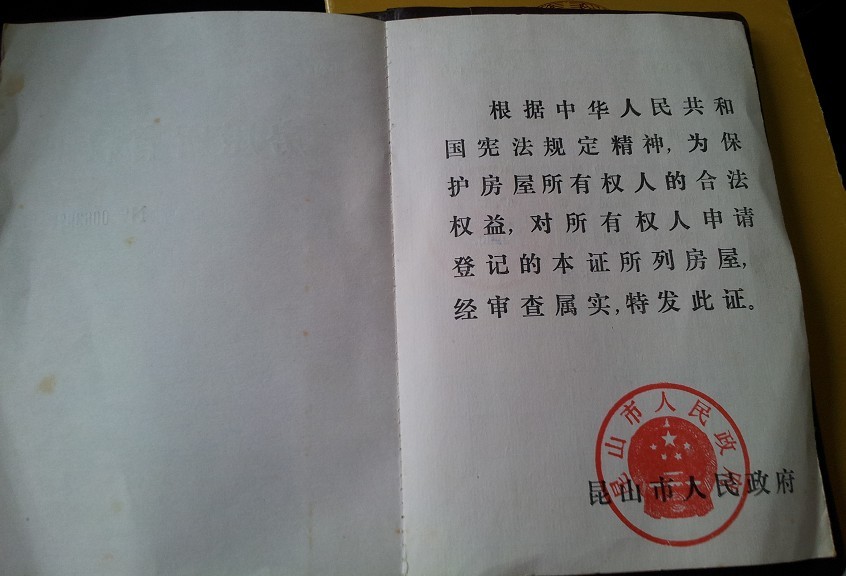 根据中华人民共和
国宪法规定精神,为保
护房屋所有权人的合法
权益,对所有权人申请
登记的本证所列房屋,
经审查属实,特发此证。
昆山市人民政府
昆山市人民政府